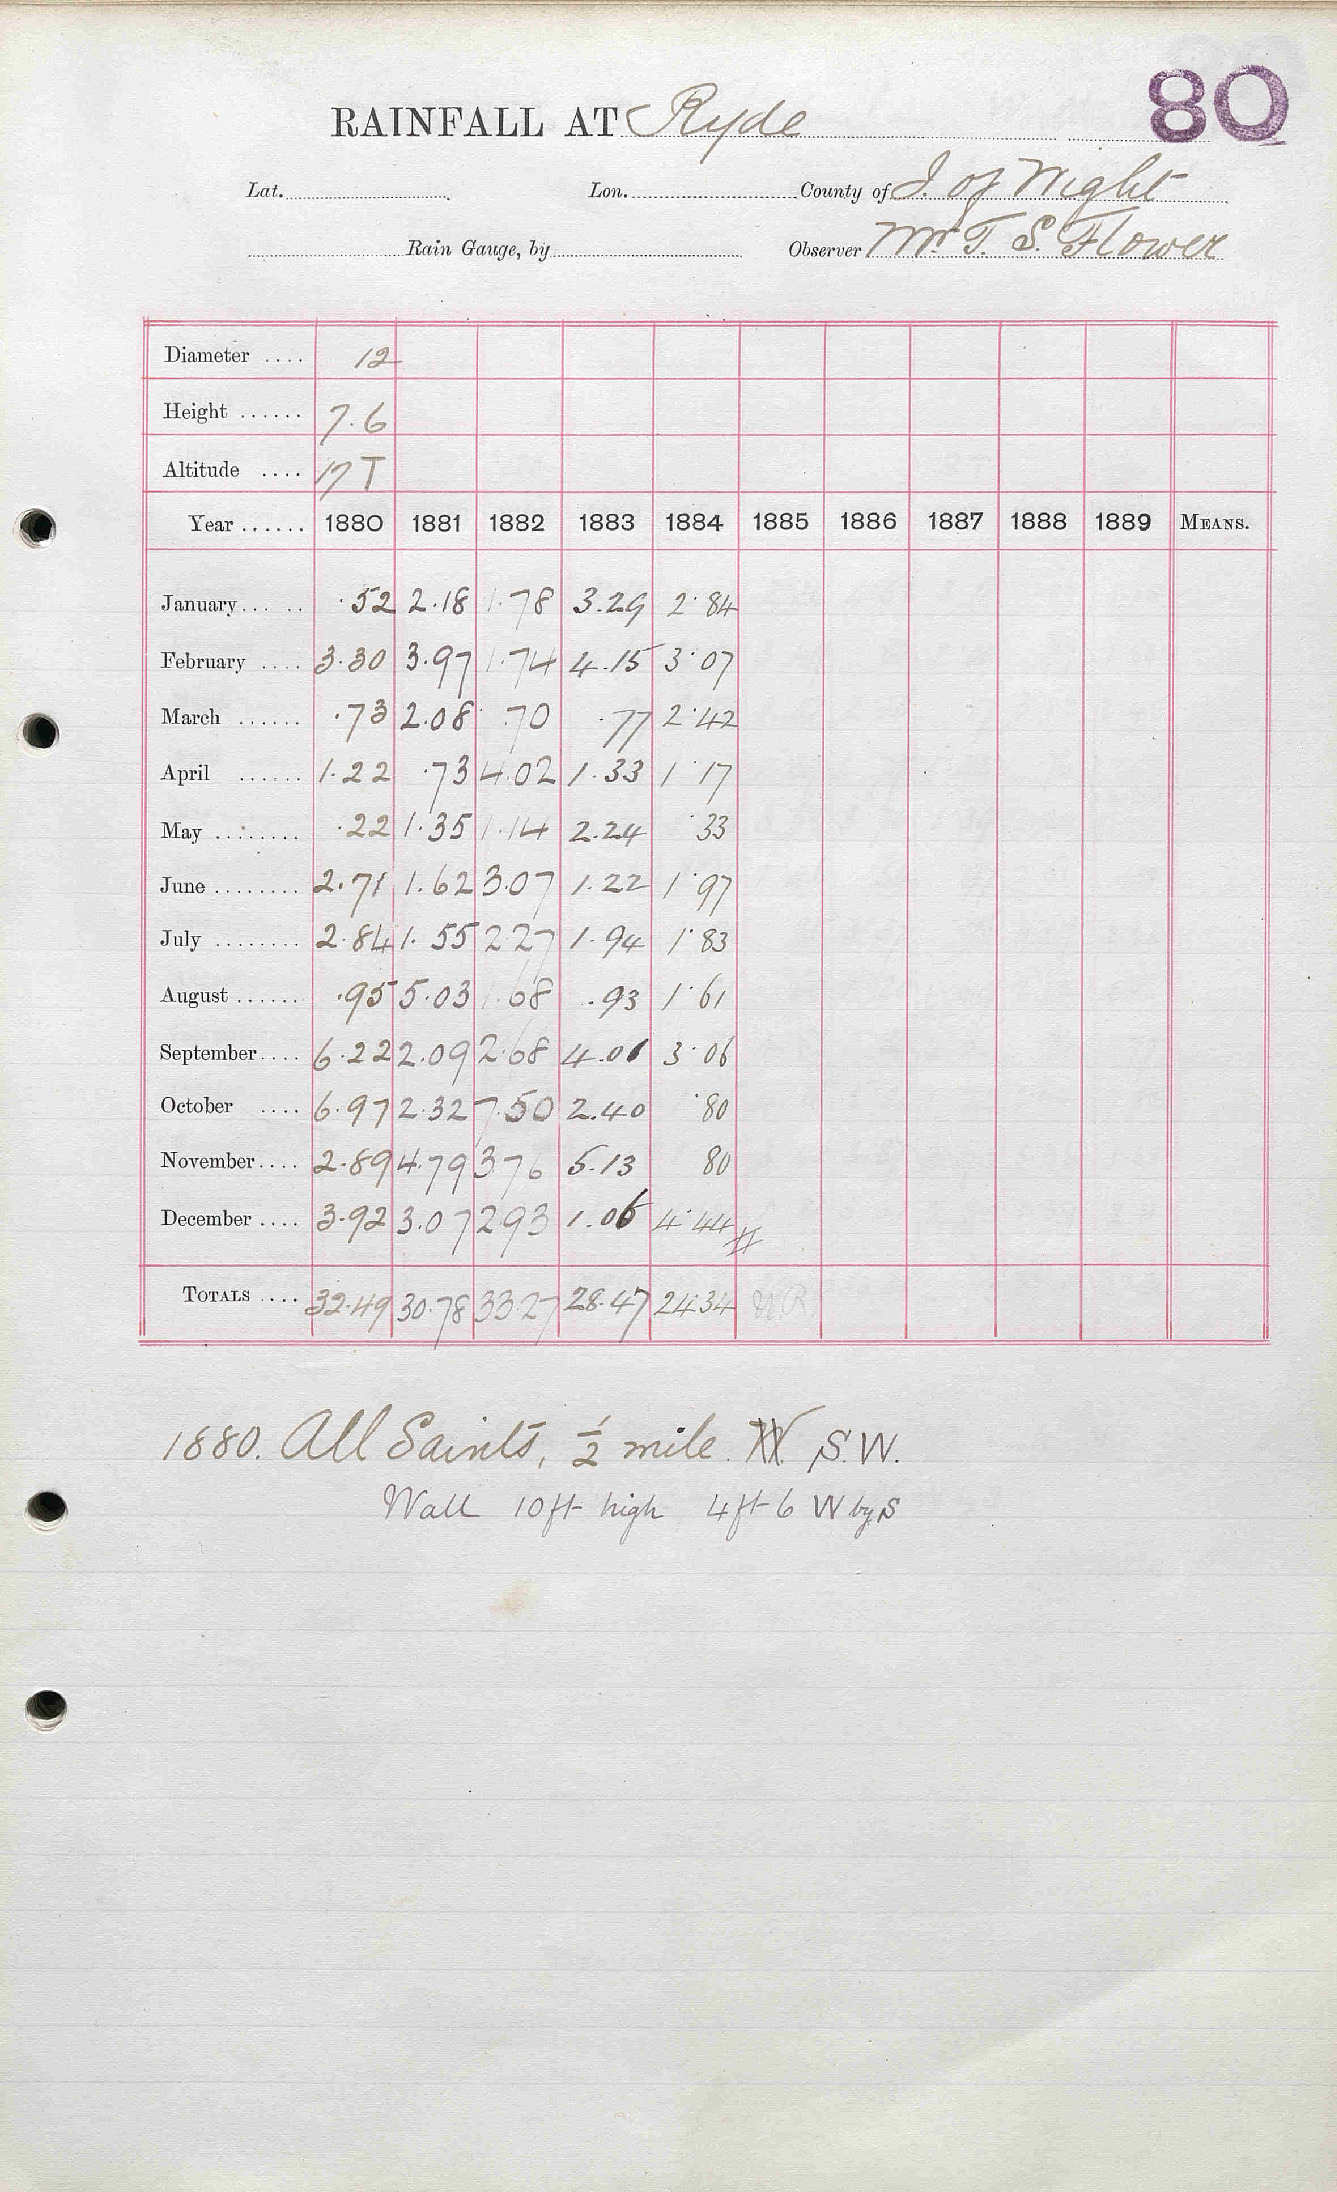 80
RAINFALL AT Ryde
Lat. Lon. County of I. of Wight
Rain Gauge, by Observer Mr. T. S. Flower
Diameter .... 12
Height ...... 7.6
Altitude .... 17 T
Year ...... 1880 1881 1882 1883 1884 1885 1886 1887 1888 1889 MEANS.
January ... .. .52 2.18 1.78 3.29 2.84
February .... 3.30 3.97 1.74 4.15 3.07
March ...... .73 2.08 .70 .77 2.42
April ...... 1.22 .73 4.02 1.33 1.17
May ........ .22 1.35 1.14 2.24 .33
June ........ 2.71 1.62 3.07 1.22 1.97
July ........ 2.84 1.55 2.27 1.94 1.83
August ...... .95 5.03 1.68 .93 1.61
September .... 6.22 2.09 2.68 4.01 3.06
October .... 6.97 2.32 7.50 2.40 .80
November .... 2.89 4.79 3.76 5.13 80
December .... 3.92 3.07 2.93 1.06 4.44
TOTALS .... 32.49 30.78 33.27 28.47 24.34
1880. All Saints, ½ mile S.W.
Wall 10ft high 4ft 6 W by S